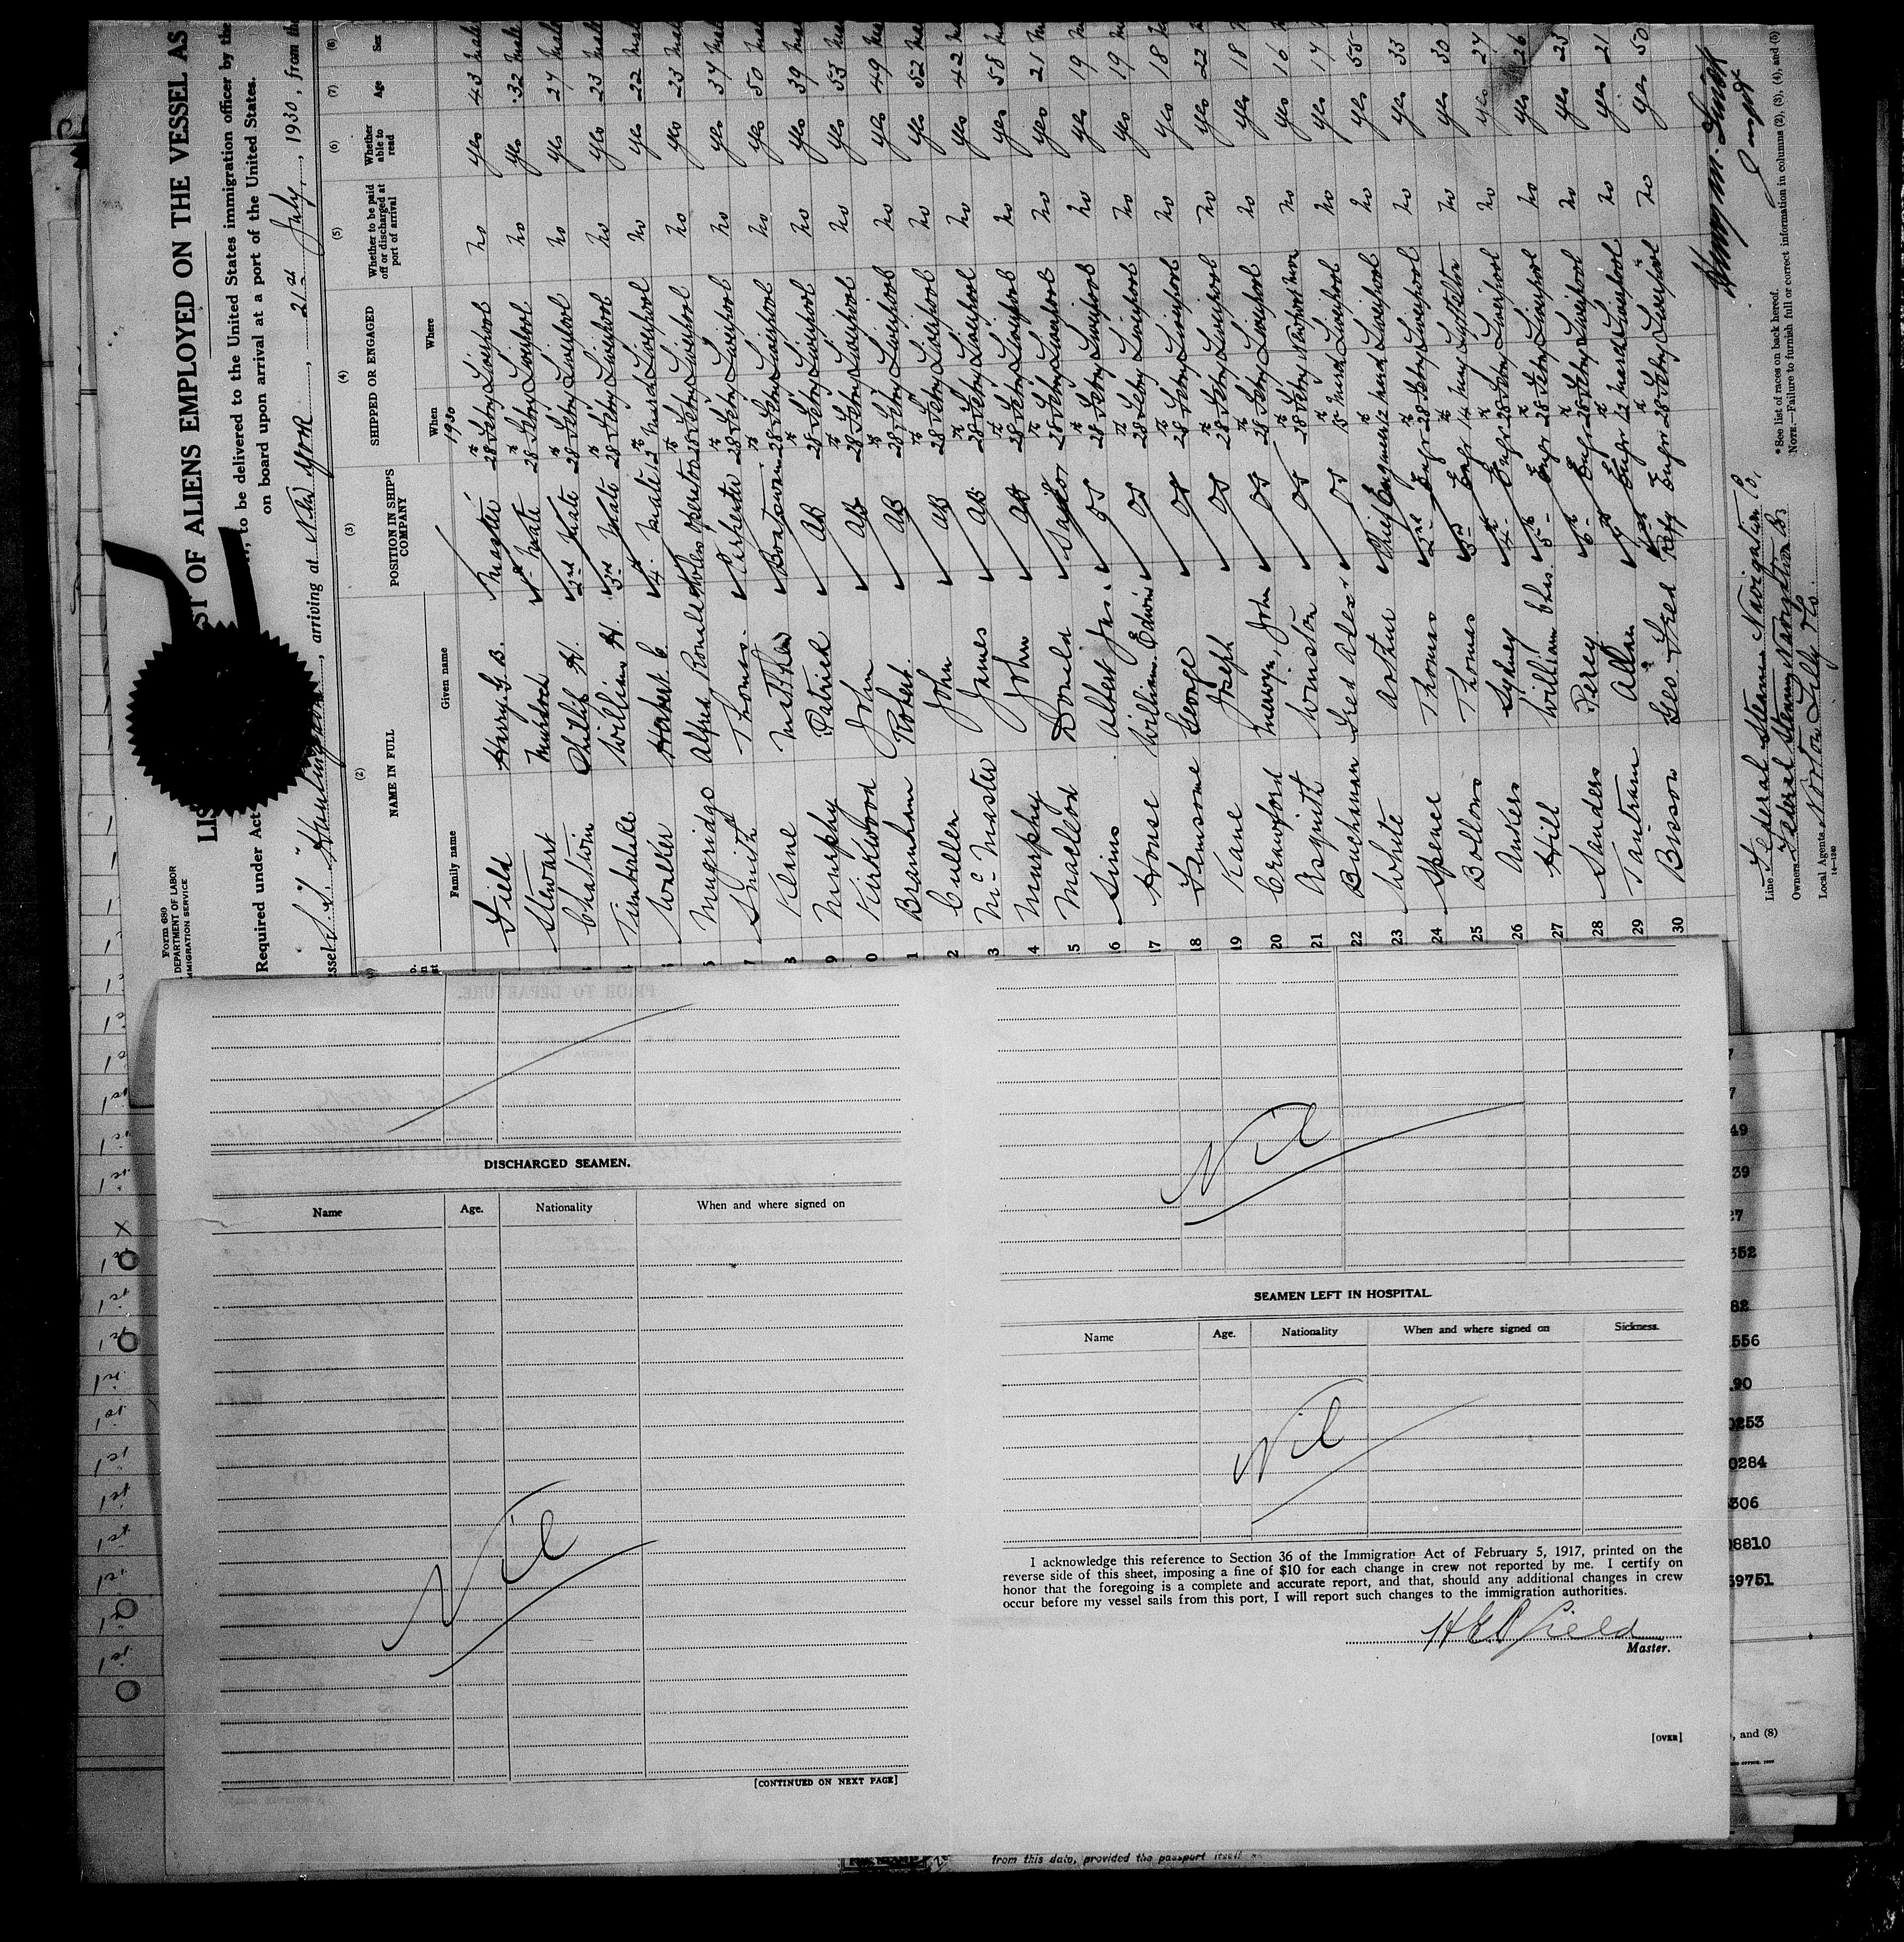 Form 680
DEPARTMENT OF LABOR
IMMIGRATION SERVICE
ST OF ALIENS EMPLOYED ON THE VESSEL AS
Required under Act
, to be delivered to the United States immigration officer by the
on board upon arrival at a port of the United States.
S.S. "Huntingdon", arriving at New York, 21st July, 1930, from the
(2) (3) (4) (5) (6) (7) (8)
NAME IN FULL POSITION IN SHIP'S COMPANY SHIPPED OR ENGAGED Whether to be paid off or discharged at port of arrival Whether able to read Age Sex
Family name Given name When Where
1930
Field Harry G. B. Master 28th Feby Liverpool no yes 43 male
Stewart Murdoch 1st Mate 28th Feby Liverpool no yes 32 male
Chatwin Philip H. 2nd Mate 28th Feby Liverpool no yes 27 male
Timberlake William H. 3rd Mate 28th Feby Liverpool no yes 23 male
Walker Herbert C. 4th Mate 12th March Liverpool no yes 22 male
Mugridge Alfred Ronald Wireless Operator 28th Feby Liverpool no yes 23 male
Smith Thomas Carpenter 28th Feby Liverpool no yes 37 male
8 Keane Matthew Boatswain 28th Feby Liverpool no yes 50
9 Murphy Patrick AB 28th Feby Liverpool no yes 39
0 Kirkwood John AB 28th Feby Liverpool no yes 53
1 Branham Robert AB 28th Feby Liverpool no yes 49
2 Cullen John AB 28th Feby Liverpool no yes 52
3 McMaster James AB 28th Feby Liverpool no yes 42
4 Murphy John AB 28th Feby Liverpool no yes 58
5 Macleod Donald Sailor 28th Feby Liverpool no yes 21
16 Sims Albert Jas. OS 28th Feby Liverpool no yes 19
17 House William Edwin OS 28th Feby Liverpool no yes 19
18 Fensome George OS 28th Feby Liverpool no yes 18
19 Kane Joseph OS 28th Feby Liverpool no yes 22
20 Crawford Mervyn John OS 28th Feby Liverpool no yes 18
21 Asquith Winston OS 28th Feby no yes 16
22 Buchanan Fred Alex OS 15th March Liverpool no yes 17
23 White Arthur Chief Engineer 12 March Liverpool no yes 55
24 Spence Thomas 2nd Engr 28th Feby Liverpool no yes 33
25 Bollons Thomas 3rd Engr 14th May Lyttelton no yes 30
26 Ankers Sydney 4th Engr 28th Feby Liverpool no yes 27
27 Hill William Chas. 5th Engr 28th Feby Liverpool no yes 26
28 Sanders Percy 6th Engr 28th Feby Liverpool no yes 23
29 Tantram Allan 7th Engr 12th March Liverpool no yes 21
30 Bisson Geo Fred Refg Engr 28th Feby Liverpool no yes 50
Line Federal Steam Navigation Co,
Owners Federal Steam Navigation Co
Local Agents Norton Lilly & Co.
14—1240
*See list of races on back hereof.
NOTE.—Failure to furnish full or correct information in columns (2), (3), (4), and (5)
DISCHARGED SEAMEN.
Name Age. Nationality When and where signed on
Nil
[CONTINUED ON NEXT PAGE]
Nil
SEAMEN LEFT IN HOSPITAL
Name Age. Nationality When and where signed on Sickness.
Nil
I acknowledge this reference to Section 36 of the Immigration Act of February 5, 1917, printed on the
reverse side of this sheet, imposing a fine of $10 for each change in crew not reported by me. I certify on
honor that the foregoing is a complete and accurate report, and that, should any additional changes in crew
occur before my vessel sails from this port, I will report such changes to the immigration authorities.
Field
Master.
[OVER]
49
39
27
352
82
556
90
0253
0284
306
8810
59751
, and (8)
from this date, provided the passport itself